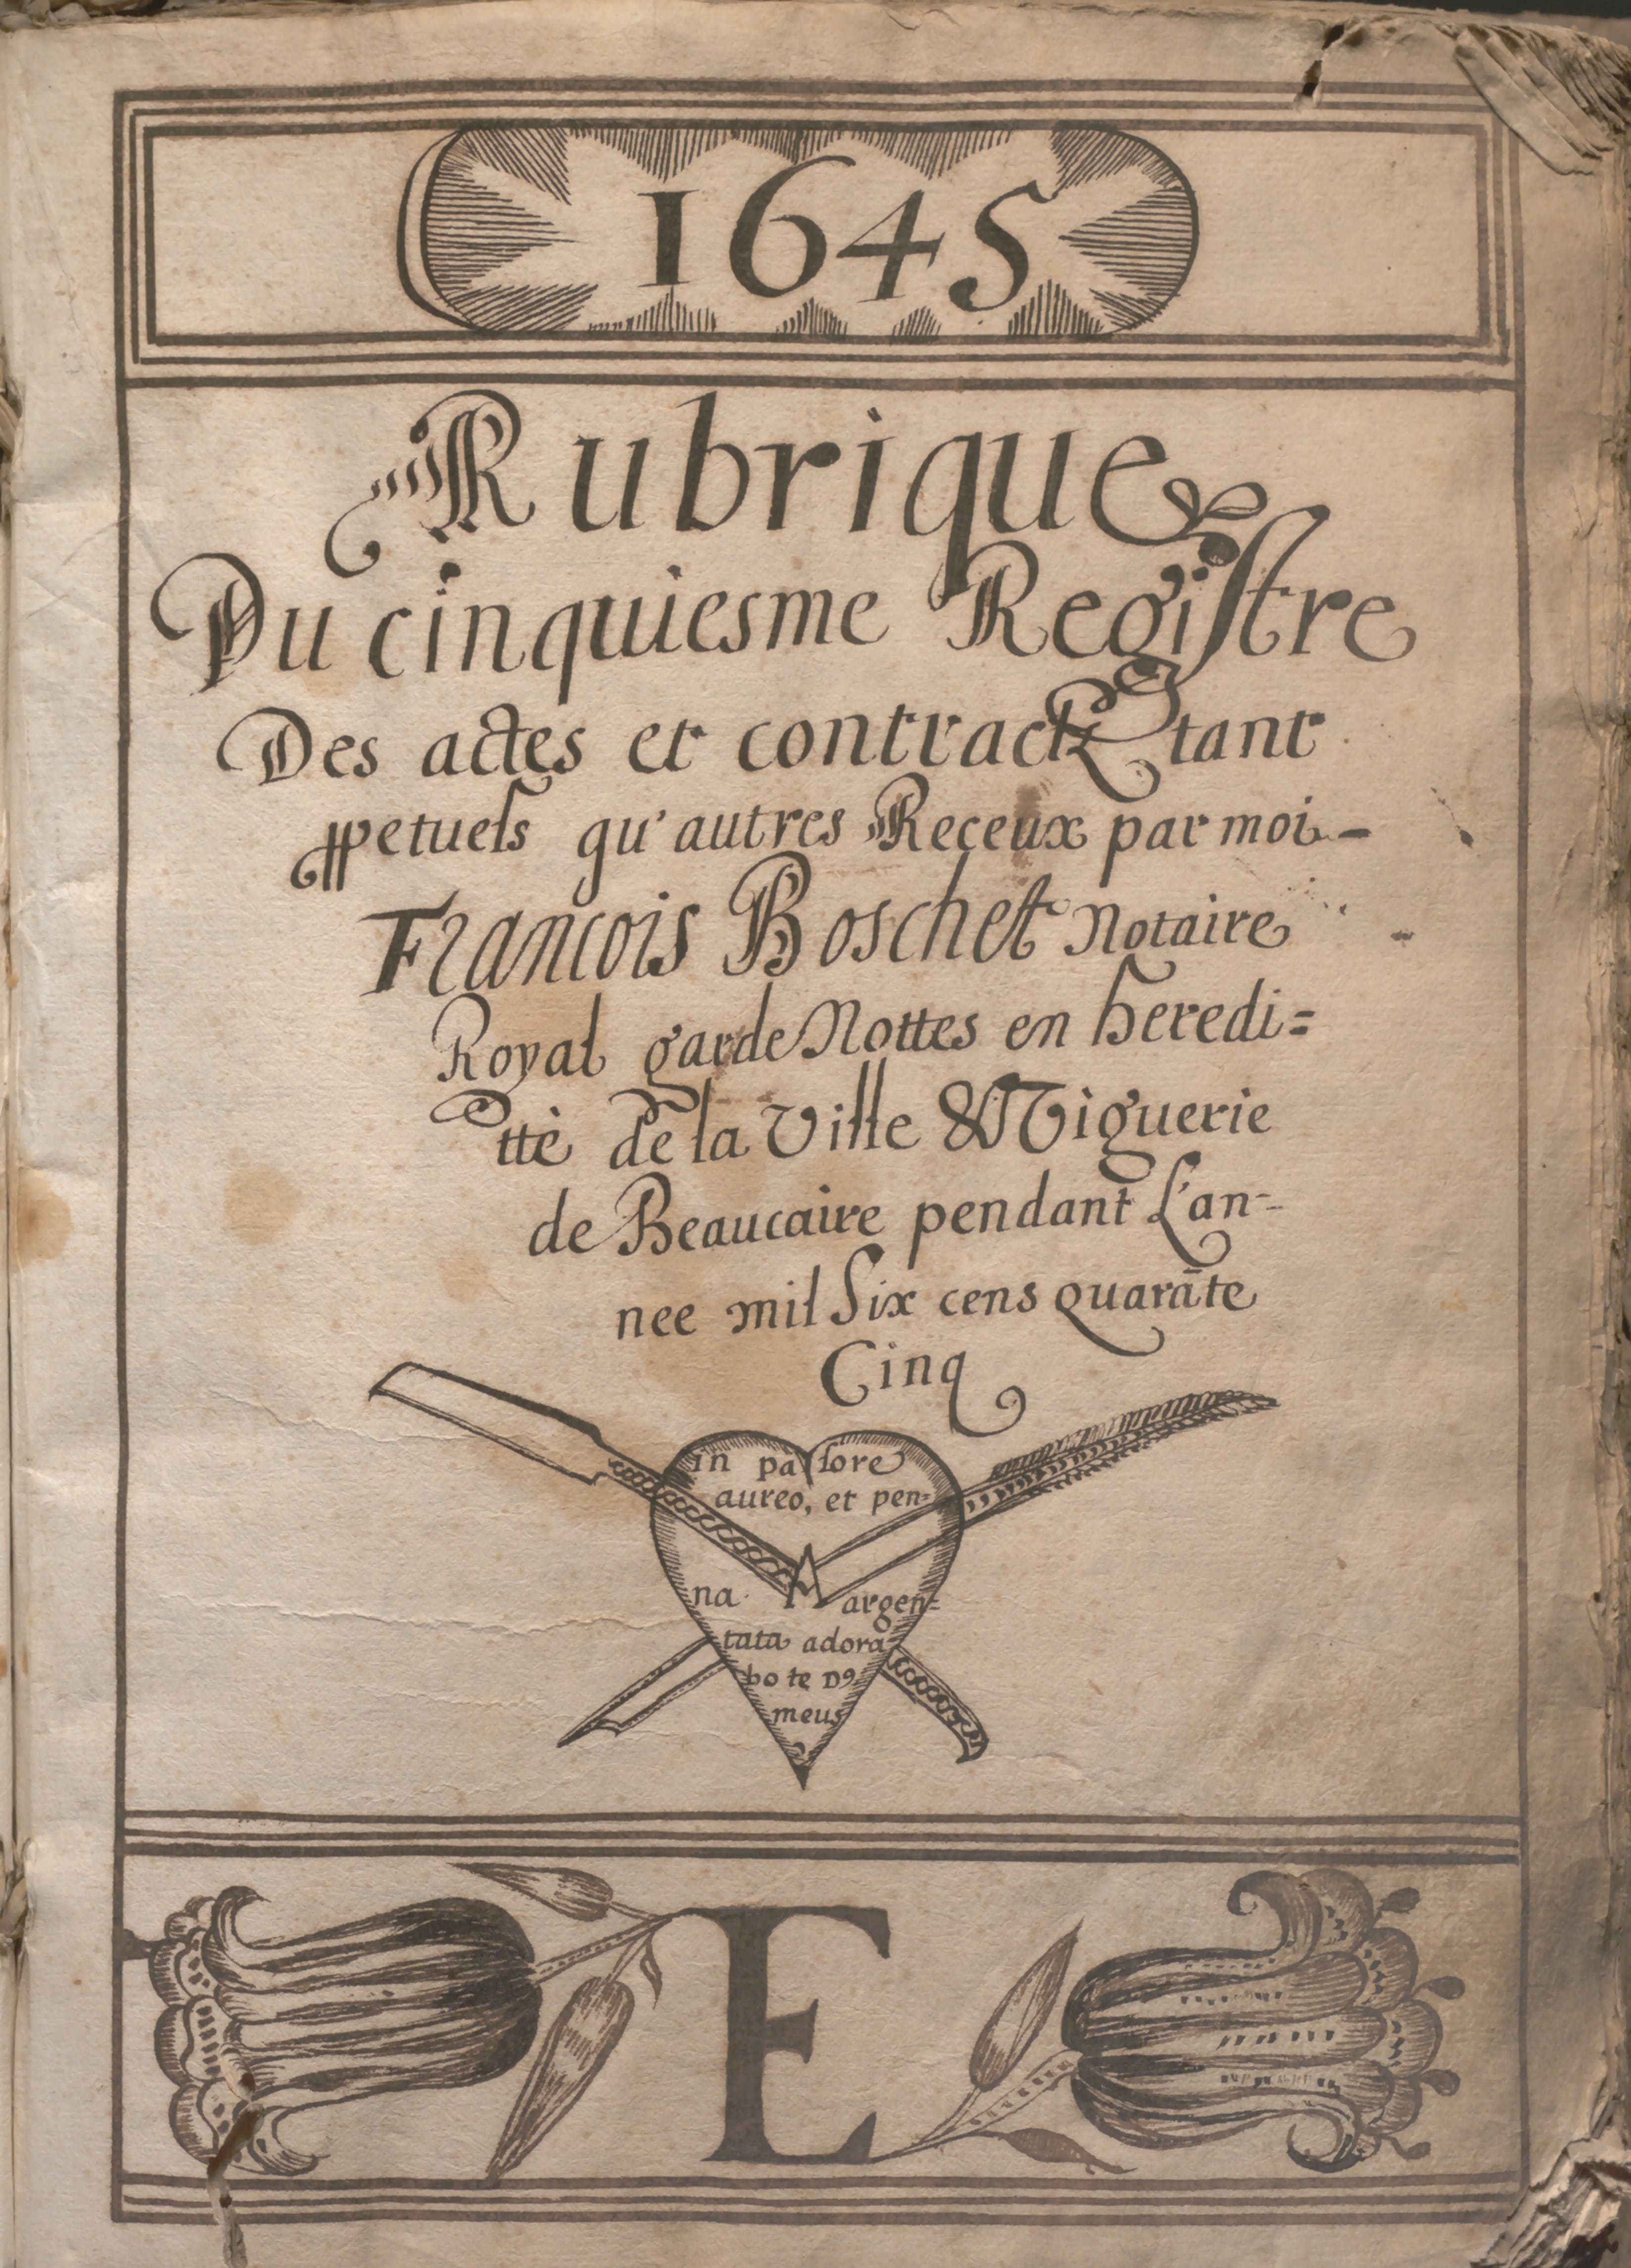 1645
Rubrique
Du cinquiesme Regiſtre
Des actes et contractz tant
ꝑpetuels qu'autres Receux par moi -
Francois Boschet Notaire
Royal garde Nottes en heredi=
ttè de la Ville & Viguerie
de Beaucaire pendant L'an-
nee mil Six cens quarāte
Cinq
in paſtore
aureo, et pen=
na argen=
tata adora
bo te D9
meus
E